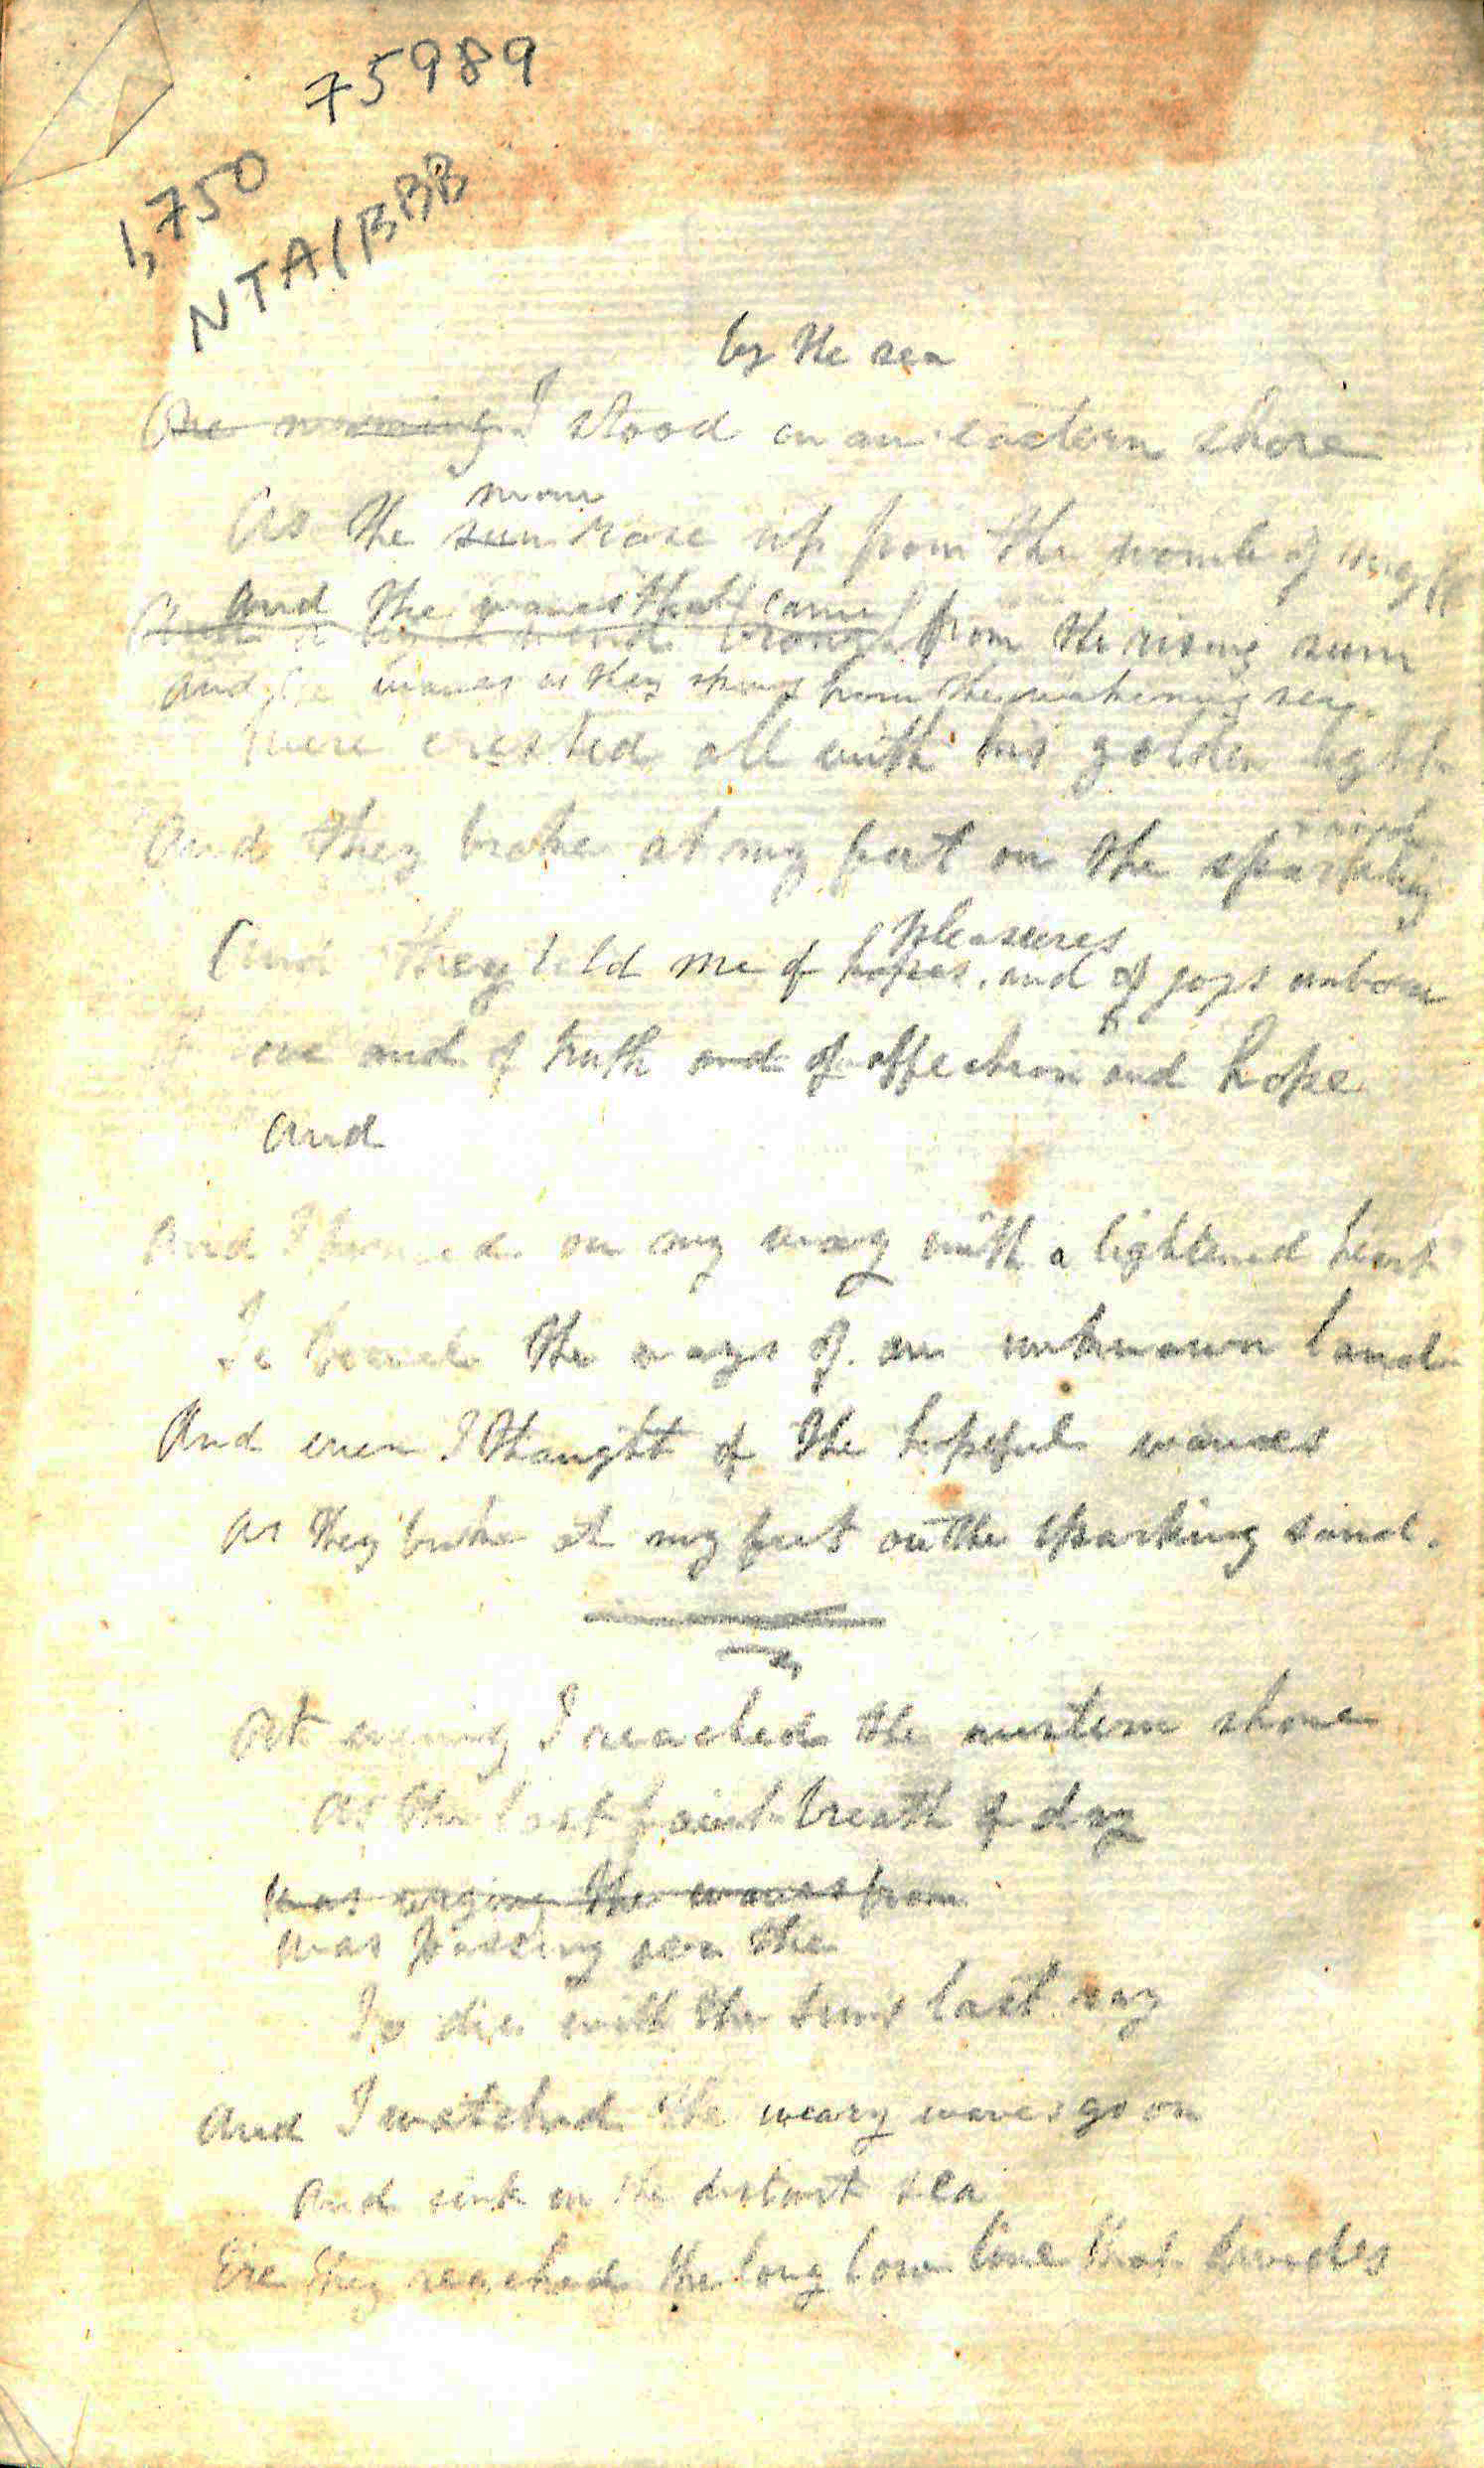 75989
1,750
NTA/BBB
by the sea
One morning I stood on an eastern shore
morn
As the sun rose up from the womb of night
And the waves that came from the rising sun
And the waves as they sprang from the wakening sea
Were crested all with his golden light
And they broke at my feet on the sparkling
sand
pleasures
And they told me of hopes, and of joys unborn
love and of truth and of affection and hope
And
And I turned on my way with a lightened heart
To the ways of an unknown land
And even I thought of the hopeful waves
As they broke at my feet on the sparking sand.
At evening I reached the western shore
As the last faint breath of day
Was urging the waves from
Was passing over the
To die with the suns last ray
And I watched the weary waves go on
And sink in the distant sea
Ere they reached the long low line that divides